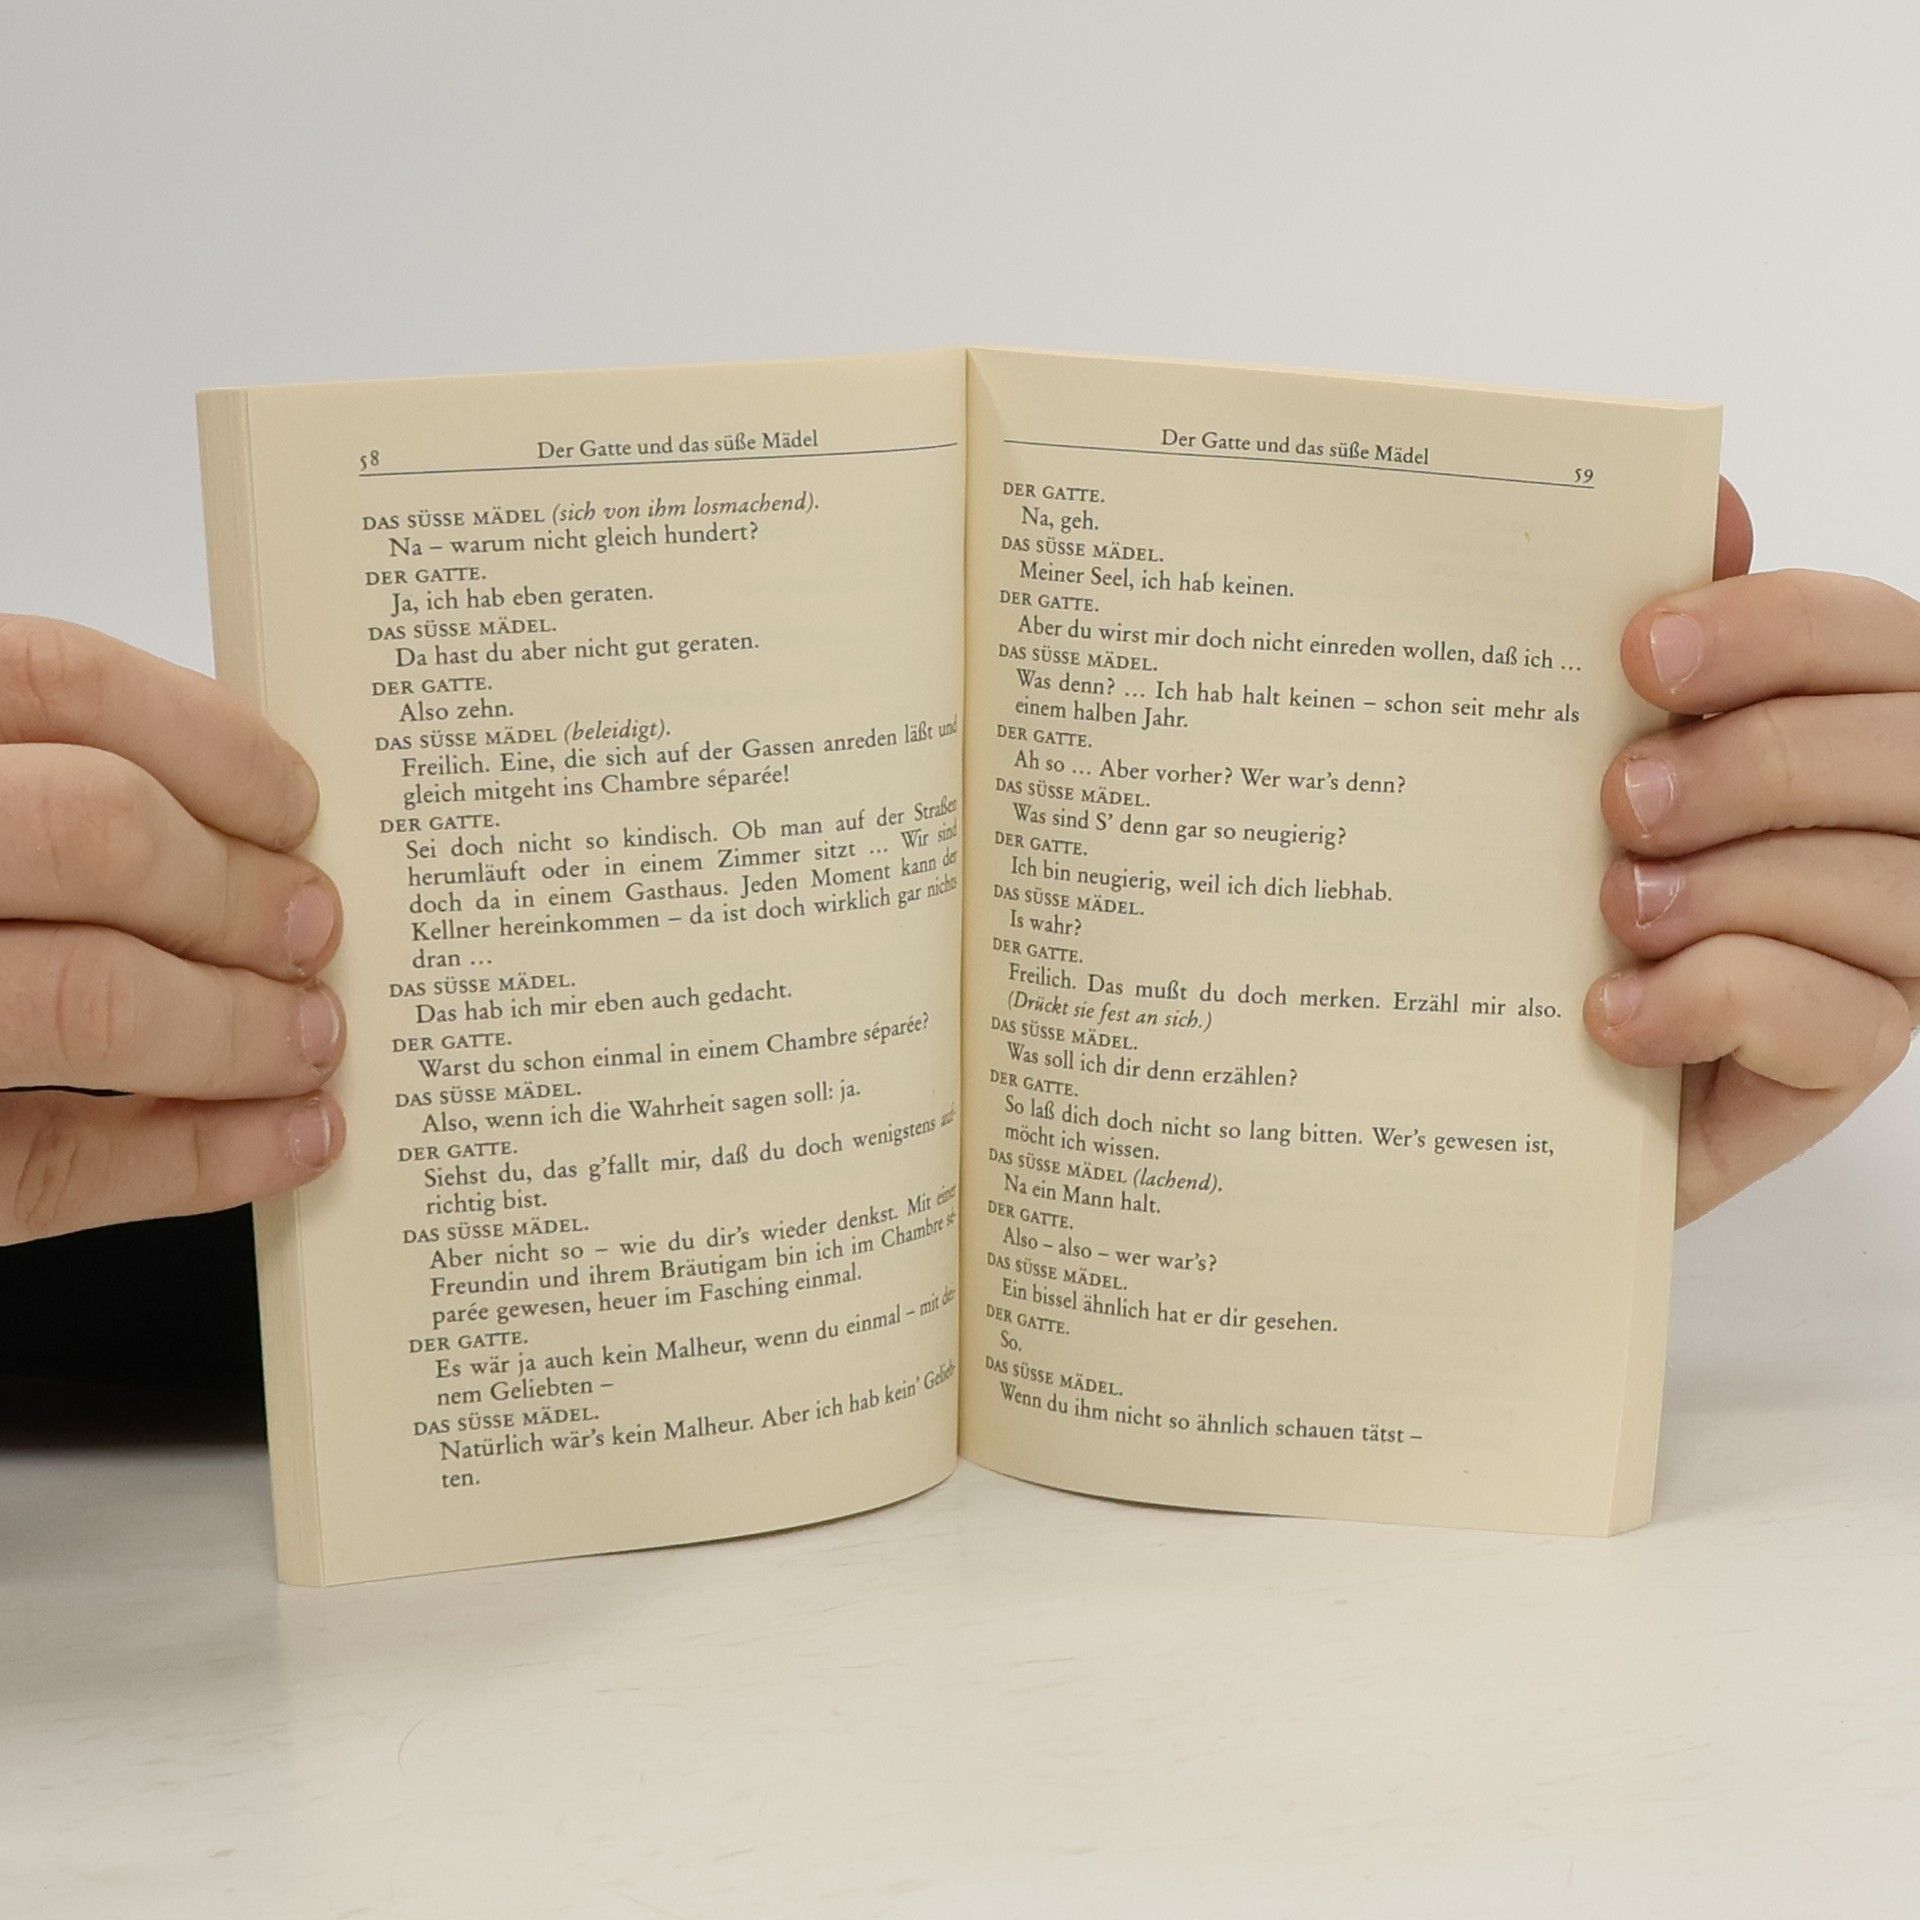 58
Der Gatte und das süße Mädel
DAS SÜSSE MÄDEL (sich von ihm losmachend).
Na – warum nicht gleich hundert?
DER GATTE.
Ja, ich hab eben geraten.
DAS SÜSSE MÄDEL.
Da hast du aber nicht gut geraten.
DER GATTE.
Also zehn.
DAS SÜSSE MÄDEL (beleidigt).
Freilich. Eine, die sich auf der Gassen anreden läßt und
gleich mitgeht ins Chambre séparée!
DER GATTE.
Sei doch nicht so kindisch. Ob man auf der Straßen
herumläuft oder in einem Zimmer sitzt ... Wir sind
doch da in einem Gasthaus. Jeden Moment kann der
Kellner hereinkommen – da ist doch wirklich gar nichts
dran ...
DAS SÜSSE MÄDEL.
Das hab ich mir eben auch gedacht.
DER GATTE.
Warst du schon einmal in einem Chambre séparée?
DAS SÜSSE MÄDEL.
Also, wenn ich die Wahrheit sagen soll: ja.
DER GATTE.
Siehst du, das g’fallt mir, daß du doch wenigstens auf-
richtig bist.
DAS SÜSSE MÄDEL.
Aber nicht so – wie du dir’s wieder denkst. Mit einer
Freundin und ihrem Bräutigam bin ich im Chambre sé-
parée gewesen, heuer im Fasching einmal.
DER GATTE.
Es wär ja auch kein Malheur, wenn du einmal – mit dei-
nem Geliebten –
DAS SÜSSE MÄDEL.
Natürlich wär’s kein Malheur. Aber ich hab kein’ Gelieb-
ten.
Der Gatte und das süße Mädel
59
DER GATTE.
Na, geh.
DAS SÜSSE MÄDEL.
Meiner Seel, ich hab keinen.
DER GATTE.
Aber du wirst mir doch nicht einreden wollen, daß ich ...
DAS SÜSSE MÄDEL.
Was denn? ... Ich hab halt keinen – schon seit mehr als
einem halben Jahr.
DER GATTE.
Ah so ... Aber vorher? Wer war’s denn?
DAS SÜSSE MÄDEL.
Was sind S’ denn gar so neugierig?
DER GATTE.
Ich bin neugierig, weil ich dich liebhab.
DAS SÜSSE MÄDEL.
Is wahr?
DER GATTE.
Freilich. Das mußt du doch merken. Erzähl mir also.
(Drückt sie fest an sich.)
DAS SÜSSE MÄDEL.
Was soll ich dir denn erzählen?
DER GATTE.
So laß dich doch nicht so lang bitten. Wer’s gewesen ist,
möcht ich wissen.
DAS SÜSSE MÄDEL (lachend).
Na ein Mann halt.
DER GATTE.
Also – also – wer war’s?
DAS SÜSSE MÄDEL.
Ein bissel ähnlich hat er dir gesehen.
DER GATTE.
So.
DAS SÜSSE MÄDEL.
Wenn du ihm nicht so ähnlich schauen tätst –